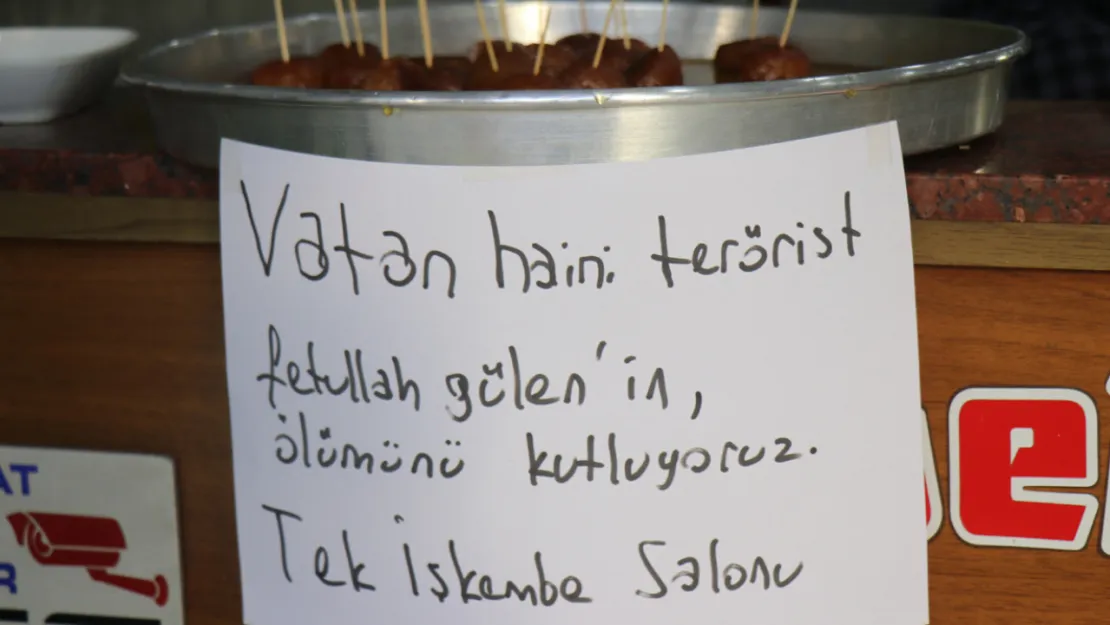 Vatan haini terörist
fetullah gülen'in,
ölümünü kutluyoruz.
Tek İşkembe Salonu
AT
R
e